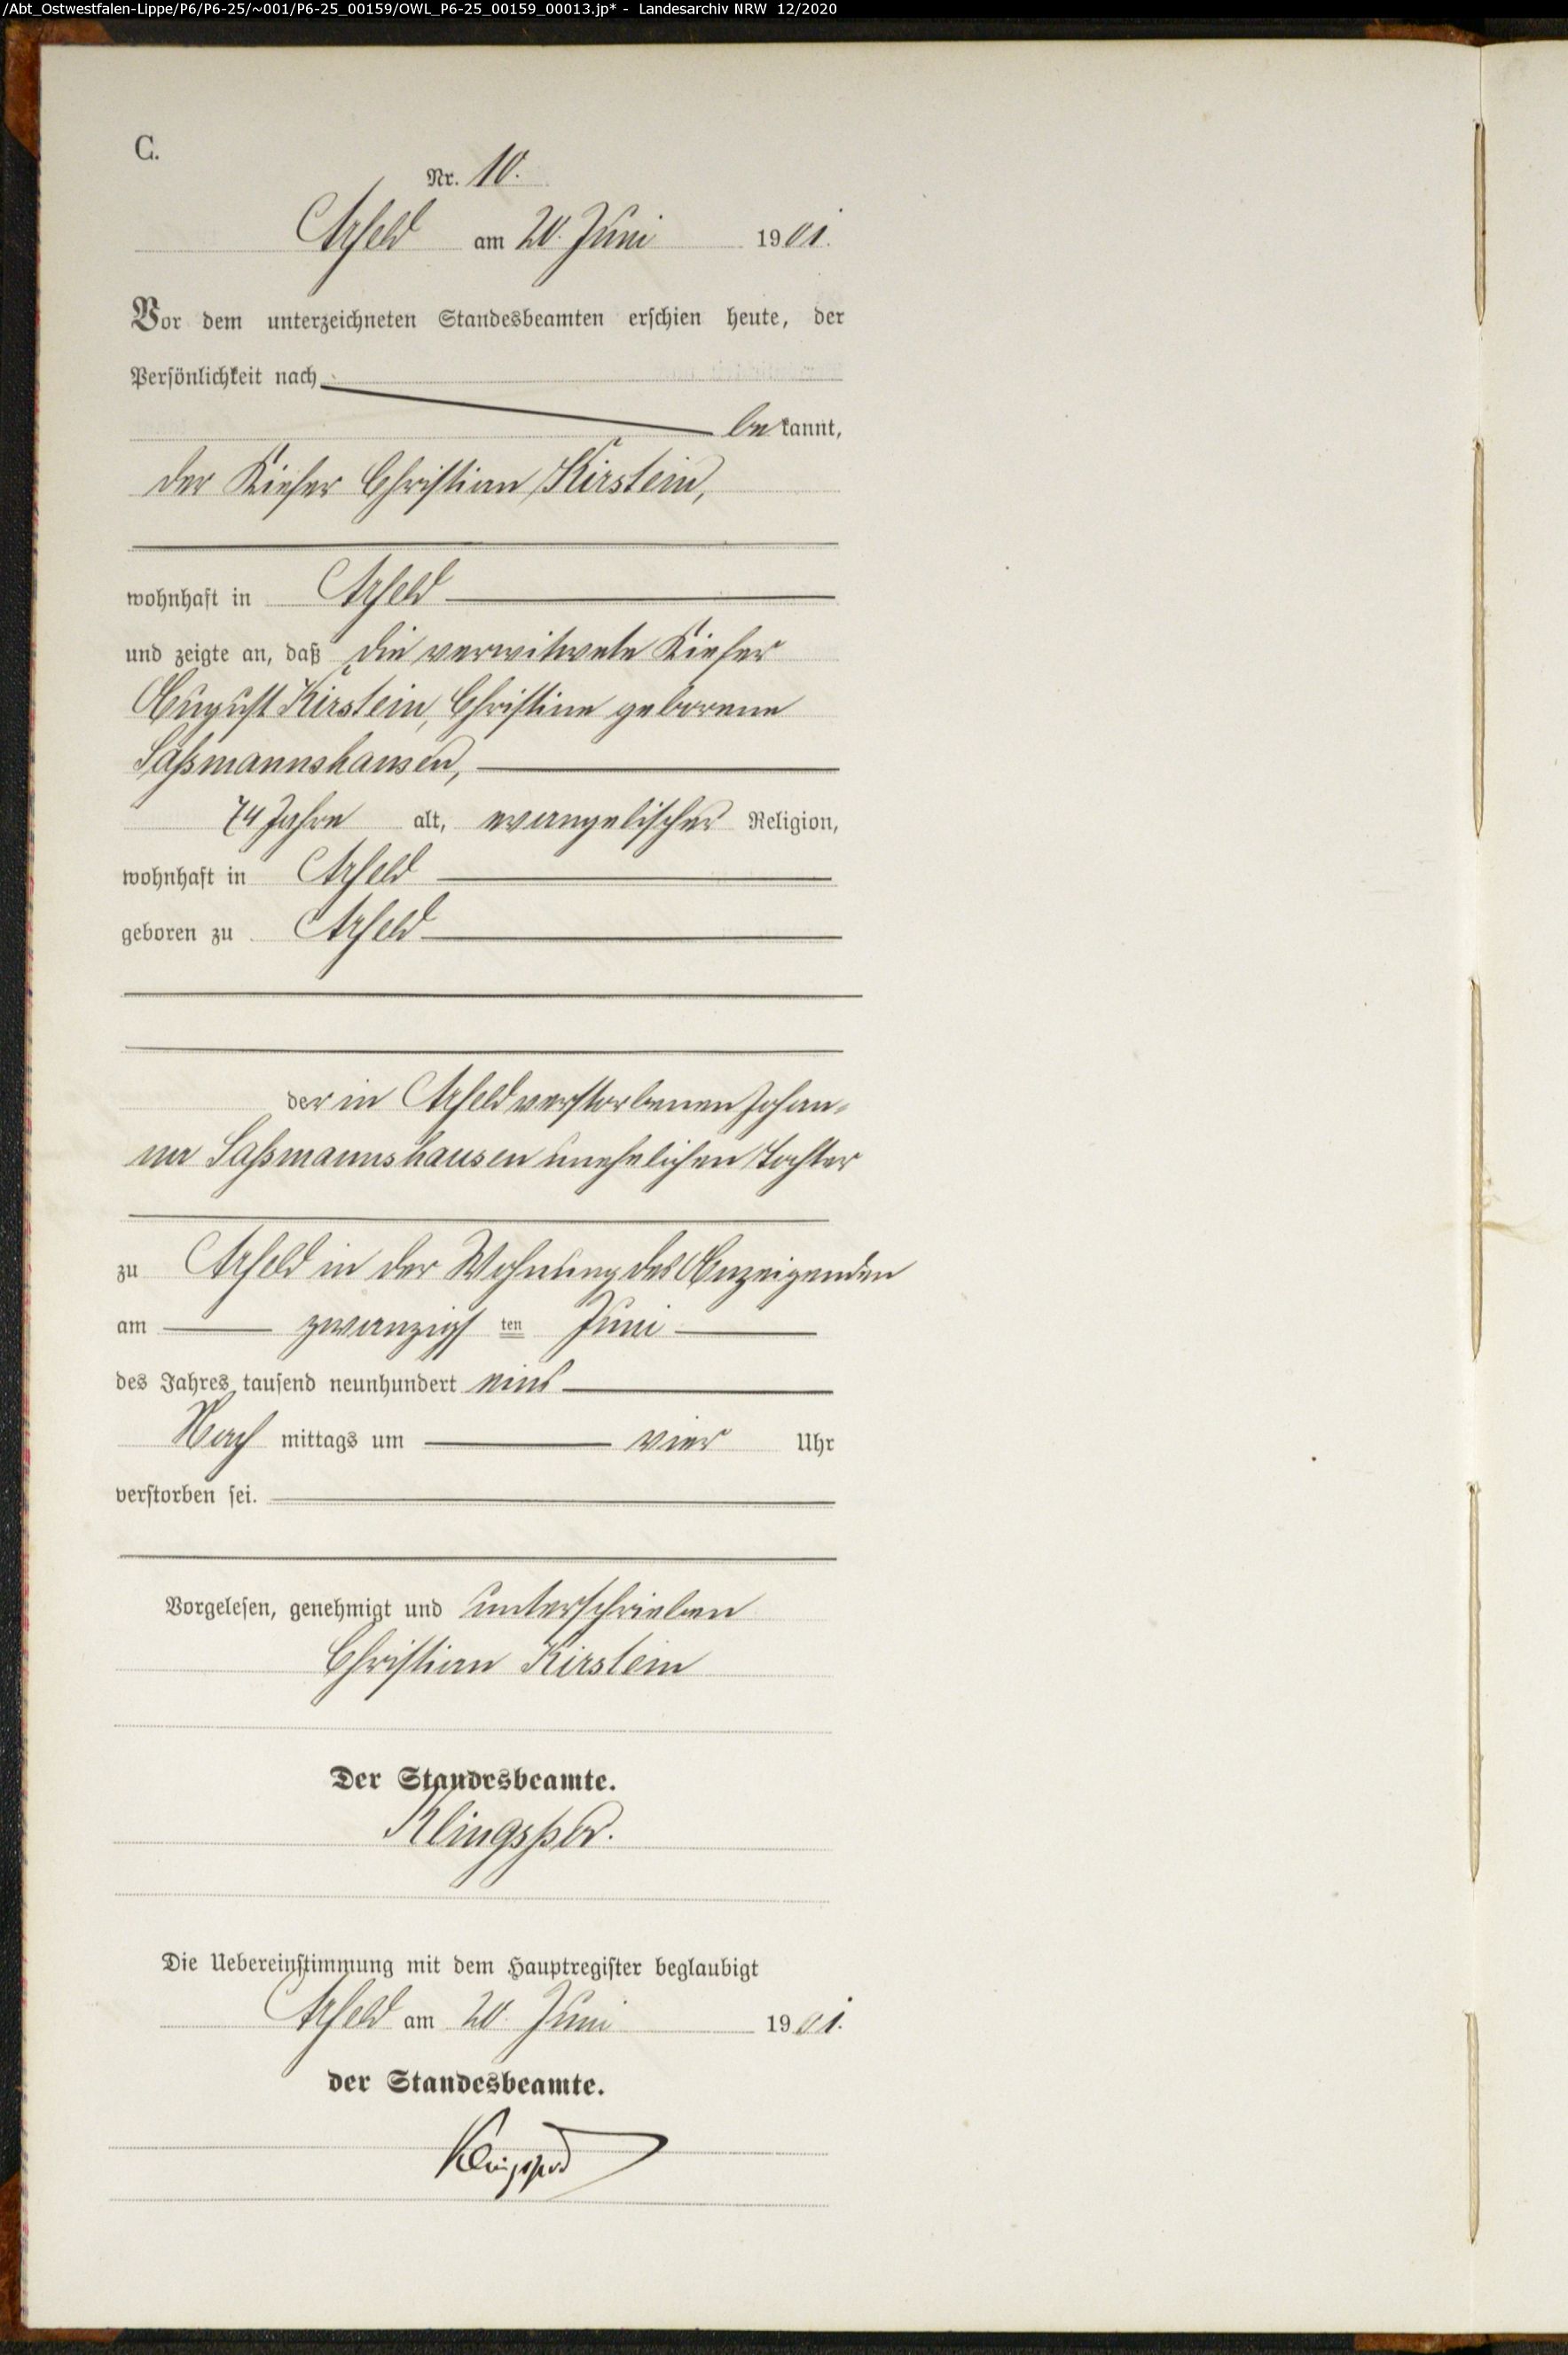 /Abt_Ostwestfalen-Lippe/P6/P6-25/~001/P6-25_00159/OWL_P6-25_00159_00013.jp* - Landesarchiv NRW 12/2020
C.
Nr. 10.
Arfeld am 20. Juni 1901.
Vor dem unterzeichneten Standesbeamten erschien heute, der
Persönlichkeit nach
bekannt,
der Christian Kirstein,
wohnhaft in Arfeld
und zeigte an, daß die verwitwete
August Kirstein, Christine geborene
Saßmannshausen,
74 Jahre alt, evangelischer Religion,
wohnhaft in Arfeld
geboren zu Arfeld
der in Arfeld verstorbenen Johan-
na Saßmannshausen unehelichen Tochter
zu Arfeld in der Wohnung des Anzeigenden
am zwanzigsten Juni
des Jahres tausend neunhundert eins
Nachmittags um vier Uhr
verstorben sei.
Vorgelesen, genehmigt und unterschrieben
Christian Kirstein
Der Standesbeamte.
Klingspor.
Die Uebereinstimmung mit dem Hauptregister beglaubigt
Arfeld am 20. Juni 1901.
der Standesbeamte.
Klingspor